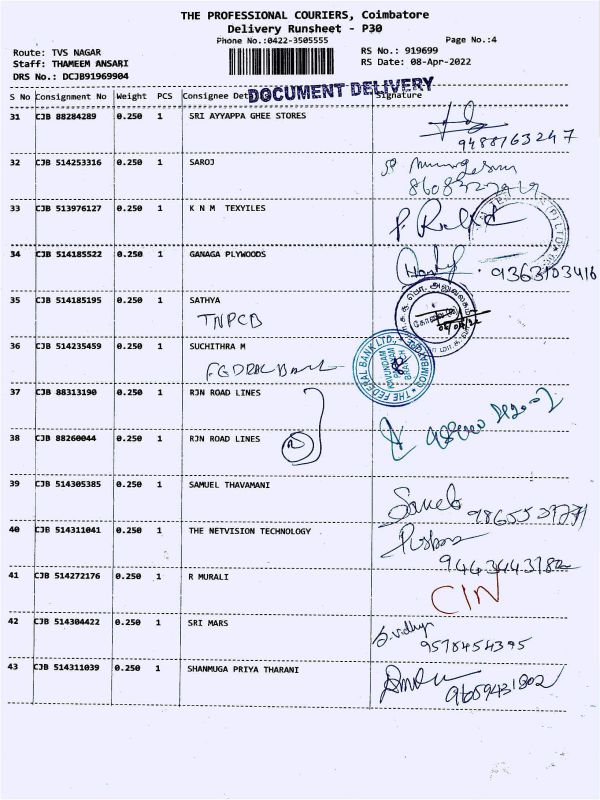 THE PROFESSIONAL COURIERS, Coimbatore
Delivery Runsheet - P30
Phone No.:0422-3505555 Page No.:4
Route: TVS NAGAR RS No.: 919699
Staff: THAMEEM ANSARI RS Date: 08-Apr-2022
DRS No.: DCJB91969904
DOCUMENT DELIVERY
S No Consignment No Weight PCS Consignee Signature
31 CJB 88284289 0.250 1 SRI AYYAPPA GHEE STORES
9488763247
32 CJB 514253316 0.250 1 SAROJ
33 CJB 513976127 0.250 1 K N M TEXYILES
34 CJB 514185522 0.250 1 GANAGA PLYWOODS
9363103416
35 CJB 514185195 0.250 1 SATHYA
TNPCB
36 CJB 514235459 0.250 1 SUCHITHRA M
FEDRAL Bank
THE FEDERAL BANK LTD.,
37 CJB 88313190 0.250 1 RJN ROAD LINES
38 CJB 88260044 0.250 1 RJN ROAD LINES
39 CJB 514305385 0.250 1 SAMUEL THAVAMANI
40 CJB 514311041 0.250 1 THE NETVISION TECHNOLOGY
41 CJB 514272176 0.250 1 R MURALI
CIN
42 CJB 514304422 0.250 1 SRI MARS
S.vidhya
9578454395
43 CJB 514311039 0.250 1 SHANMUGA PRIYA THARANI